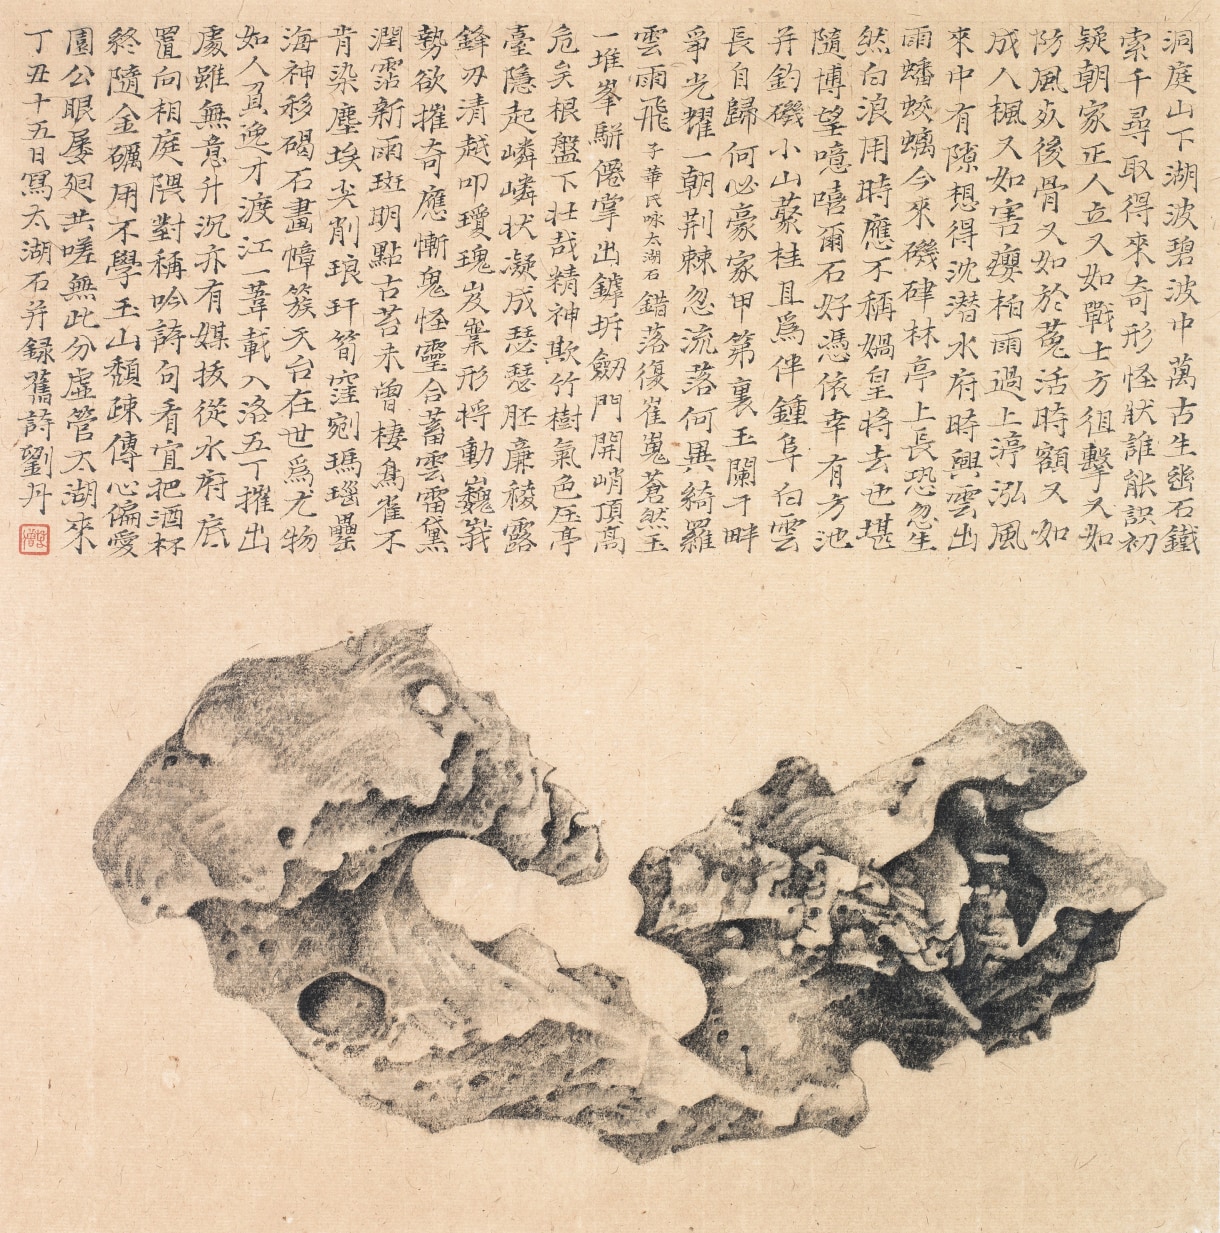 洞庭山下湖波碧波中萬古生幽石鐵
索千尋取得來奇形怪狀誰能識初
疑朝家正人立又如戰士方徂擊又如
防風死後骨又如於菟活時額又如
成人楓又如害癭柏雨過上渟泓風
來中有隙想得沈潛水府時興雲出
雨蟠蛟螭今來磯硉林亭上長恐忽生
然白浪用時應不稱媧皇將去也堪
隨博望噫嘻爾石好憑依幸有方池
并釣磯小山叢桂且為伴鍾阜白雲
長自歸何必豪家甲第裏玉闌干畔
爭光耀一朝荊棘忽流落何異綺羅
雲雨飛 子華氏咏太湖石 錯落復崔嵬蒼然玉
一堆峯駢僊掌出罅坼劒門開峭頂高
危矣根盤下壯哉精神欺竹樹氣色壓亭
臺隱起嶙嶙狀凝成瑟瑟胚廉稜露
鋒刃清越叩瓊瑰岌嶪形將動巍峩
勢欲摧奇應慚鬼怪靈合蓄雲雷黛
潤霑新雨斑明點古苔未曾棲鳥雀不
肯染塵埃尖削琅玕筍窪剜瑪瑙罍
海神移碣石畫幛簇天台在世為尤物
如人負逸才渡江一葦載入洛五丁摧出
處雖無意升沉亦有媒拔從水府底
置向相庭隈對稱吟詩句看宜把酒杯
終隨金礪用不學玉山頹疎傅心偏愛
園公眼屢迴共嗟無此分虛管太湖來
丁丑十五日寫太湖石并錄舊詩劉丹